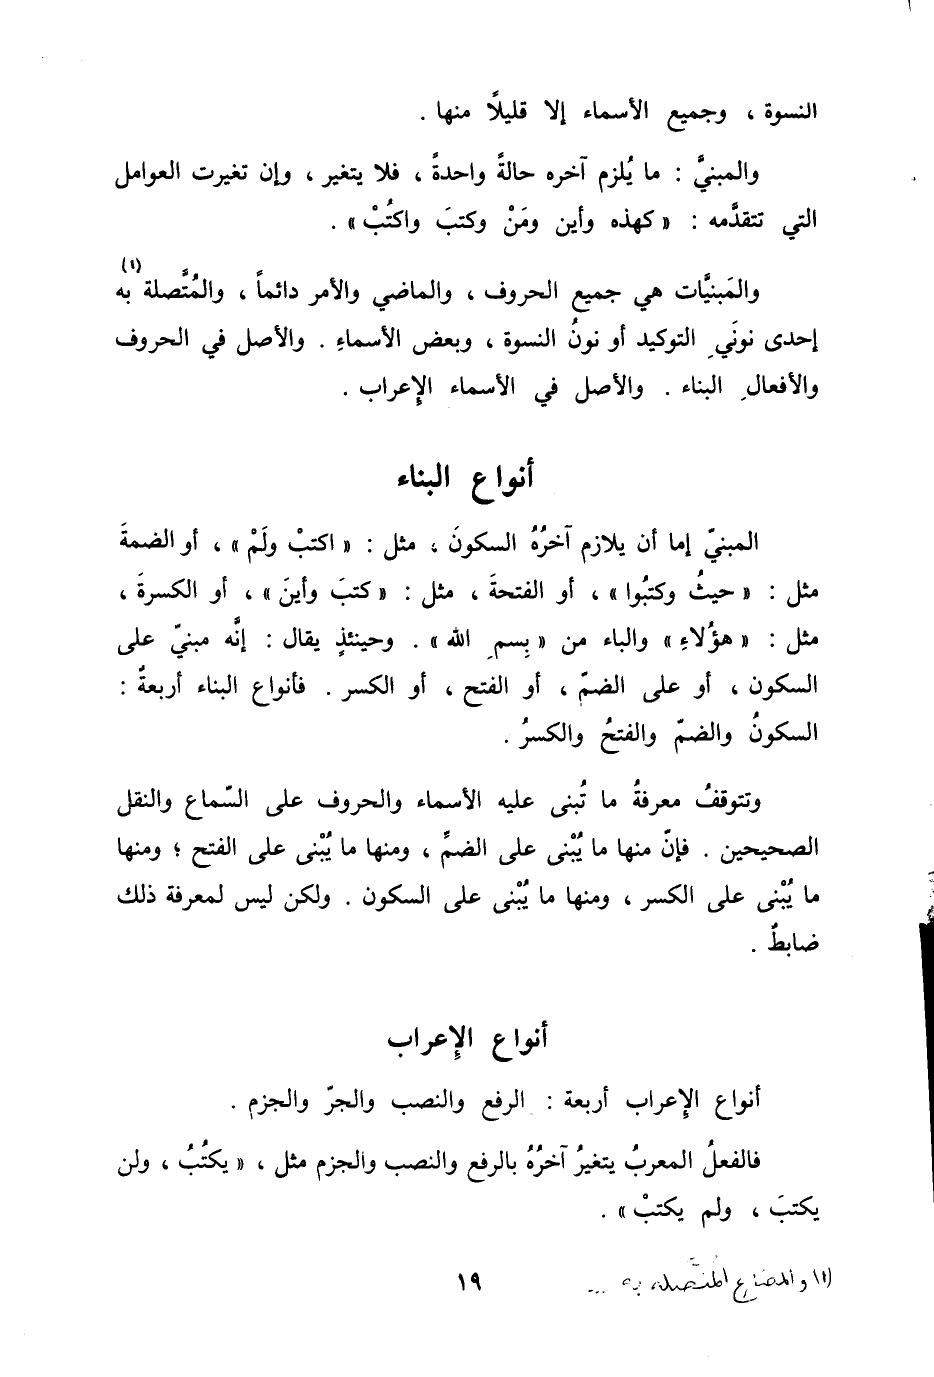 النسوة ، وجميع الأسماء إلا قليلًا منها .
والمبنيَّ : ما يُلزم آخره حالةً واحدةً ، فلا يتغير ، وإن تغيرت العوامل
التي تتقدَّمه : « كهذه وأين ومَنْ وكتبَ واكتُبْ » .
والمَبنيَّات هي جميع الحروف ، والماضي والأمر دائماً ، والمُتَّصلة (١) به
إحدى نونَي التوكيد أو نونُ النسوة ، وبعض الأسماءِ . والأصل في الحروف
والأفعالِ البناء . والأصل في الأسماء الإعراب .
أنواع البناء
المبنيّ إما أن يلازم آخرُهُ السكونَ ، مثل : « اكتبْ ولَمْ » ، أو الضمةَ
مثل : « حيثُ وكتبُوا » ، أو الفتحةَ ، مثل : « كتبَ وأينَ » ، أو الكسرةَ ،
مثل : « هؤلاءِ » والباء من « بِسمِ الله » . وحينئذٍ يقال : إنَّه مبنيّ على
السكون ، أو على الضمّ ، أو الفتح ، أو الكسر . فأنواع البناء أربعةٌ :
السكونُ والضمّ والفتحُ والكسرُ .
وتتوقفُ معرفةُ ما تُبنى عليه الأسماء والحروف على السّماع والنقل
الصحيحين . فإنّ منها ما يُبْنى على الضمِّ ، ومنها ما يُبْنى على الفتح ؛ ومنها
ما يُبْنى على الكسر ، ومنها ما يُبْنى على السكون . ولكن ليس لمعرفة ذلك
ضابطٌ .
أنواع الإعراب
أنواع الإعراب أربعة : الرفع والنصب والجرّ والجزم .
فالفعلُ المعربُ يتغيرُ آخرُهُ بالرفع والنصب والجزم مثل ، « يكتُبُ ، ولن
يكتبَ ، ولم يكتبْ » .
(١) والمضارع المتَّصلة به ...
١٩